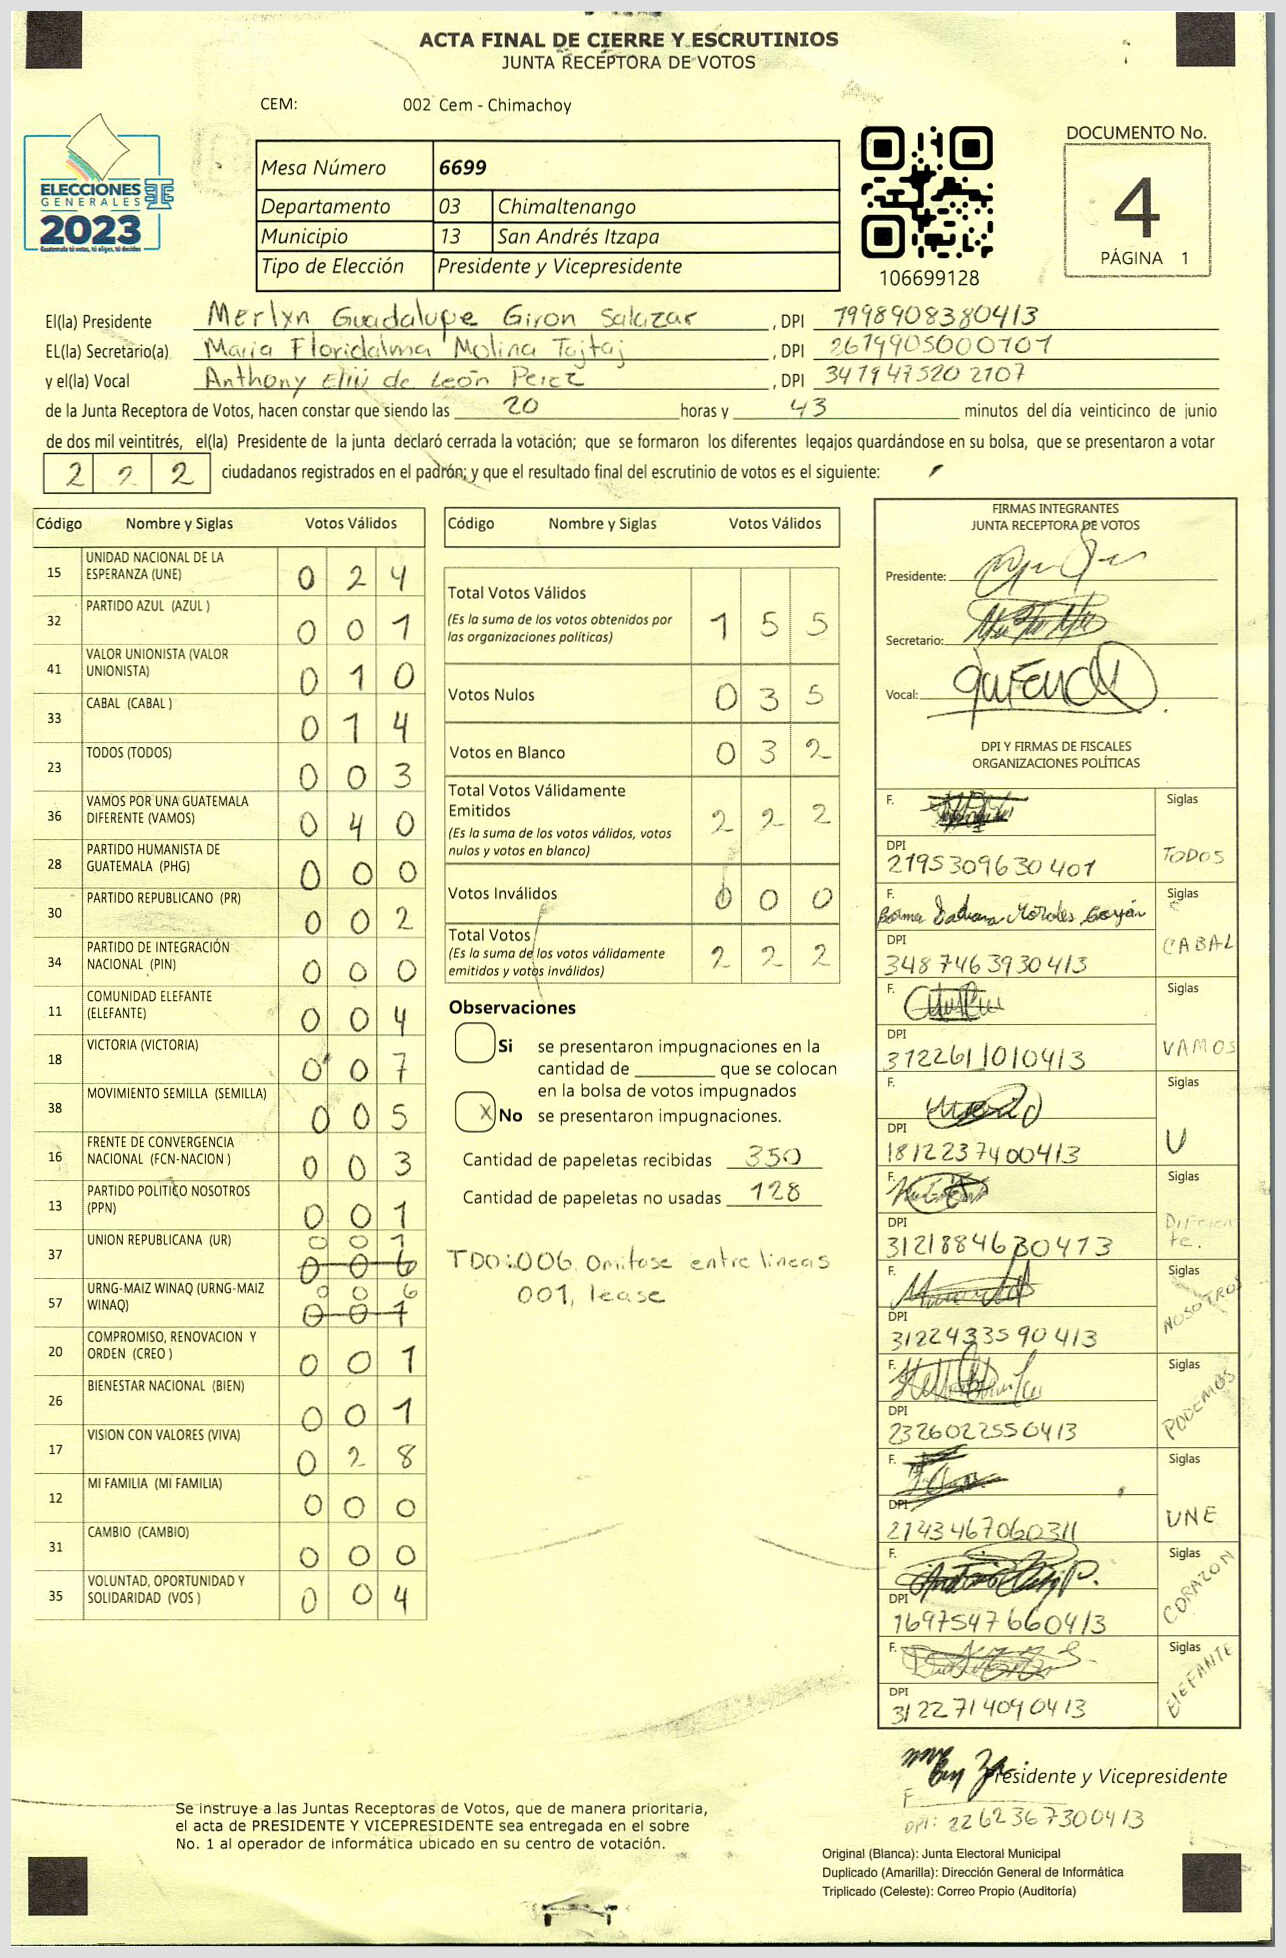 ACTA FINAL DE CIERRE Y ESCRUTINIOS
JUNTA RECEPTORA DE VOTOS
CEM: 002 Cem - Chimachoy
ELECCIONES
GENERALES
2023
Guatemala tú votas, tú eliges, tú decides
Mesa Número 6699
Departamento 03 Chimaltenango
Municipio 13 San Andrés Itzapa
Tipo de Elección Presidente y Vicepresidente
106699128
DOCUMENTO No.
4
PÁGINA 1
El(la) Presidente Merlyn Guadalupe Giron Salazar , DPI 7998908380413
EL(la) Secretario(a) Maria Floridalma Molina Tajtaj , DPI 2679905000101
y el(la) Vocal Anthony Eliú de León Perez , DPI 3419475202107
de la Junta Receptora de Votos, hacen constar que siendo las 20 horas y 43 minutos del día veinticinco de junio
de dos mil veintitrés, el(la) Presidente de la junta declaró cerrada la votación; que se formaron los diferentes legajos guardándose en su bolsa, que se presentaron a votar
2 2 2 ciudadanos registrados en el padrón; y que el resultado final del escrutinio de votos es el siguiente:
Código Nombre y Siglas Votos Válidos
15 UNIDAD NACIONAL DE LA ESPERANZA (UNE) 0 2 4
32 PARTIDO AZUL (AZUL ) 0 0 1
41 VALOR UNIONISTA (VALOR UNIONISTA) 0 1 0
33 CABAL (CABAL ) 0 1 4
23 TODOS (TODOS) 0 0 3
36 VAMOS POR UNA GUATEMALA DIFERENTE (VAMOS) 0 4 0
28 PARTIDO HUMANISTA DE GUATEMALA (PHG) 0 0 0
30 PARTIDO REPUBLICANO (PR) 0 0 2
34 PARTIDO DE INTEGRACIÓN NACIONAL (PIN) 0 0 0
11 COMUNIDAD ELEFANTE (ELEFANTE) 0 0 4
18 VICTORIA (VICTORIA) 0 0 7
38 MOVIMIENTO SEMILLA (SEMILLA) 0 0 5
16 FRENTE DE CONVERGENCIA NACIONAL (FCN-NACION ) 0 0 3
13 PARTIDO POLITICO NOSOTROS (PPN) 0 0 1
37 UNION REPUBLICANA (UR) 0 0 1
0 0 6
57 URNG-MAIZ WINAQ (URNG-MAIZ WINAQ) 0 0 6
0 0 1
20 COMPROMISO, RENOVACION Y ORDEN (CREO ) 0 0 1
26 BIENESTAR NACIONAL (BIEN) 0 0 1
17 VISION CON VALORES (VIVA) 0 2 8
12 MI FAMILIA (MI FAMILIA) 0 0 0
31 CAMBIO (CAMBIO) 0 0 0
35 VOLUNTAD, OPORTUNIDAD Y SOLIDARIDAD (VOS ) 0 0 4
Código Nombre y Siglas Votos Válidos
Total Votos Válidos 1 5 5
(Es la suma de los votos obtenidos por
las organizaciones políticas)
Votos Nulos 0 3 5
Votos en Blanco 0 3 2
Total Votos Válidamente
Emitidos 2 2 2
(Es la suma de los votos válidos, votos
nulos y votos en blanco)
Votos Inválidos 0 0 0
Total Votos 2 2 2
(Es la suma de los votos válidamente
emitidos y votos inválidos)
Observaciones
Si se presentaron impugnaciones en la
cantidad de ________ que se colocan
en la bolsa de votos impugnados
X No se presentaron impugnaciones.
Cantidad de papeletas recibidas 350
Cantidad de papeletas no usadas 128
TDO:006. Omitase entre lineas
001, lease
FIRMAS INTEGRANTES
JUNTA RECEPTORA DE VOTOS
Presidente:
Secretario:
Vocal:
DPI Y FIRMAS DE FISCALES
ORGANIZACIONES POLÍTICAS
F. Siglas
DPI 2195309630401 TODOS
F. Siglas
DPI 3487463930413 CABAL
F. Siglas
DPI 3122611010413 VAMOS
F. Siglas
DPI 1812237400413 U
F. Siglas
DPI 3121884630413
F. Siglas
DPI 3122433590413 NOSOTROS
F. Siglas
DPI 2326022550413 PODEMOS
F. Siglas
DPI 2143467060311 UNE
F. Siglas
DPI 1697547660413 CORAZON
F. Siglas
DPI 3122714090413 ElEFANTE
Presidente y Vicepresidente
F
DPI: 2262367300413
Se instruye a las Juntas Receptoras de Votos, que de manera prioritaria,
el acta de PRESIDENTE Y VICEPRESIDENTE sea entregada en el sobre
No. 1 al operador de informática ubicado en su centro de votación.
Original (Blanca): Junta Electoral Municipal
Duplicado (Amarilla): Dirección General de Informática
Triplicado (Celeste): Correo Propio (Auditoría)